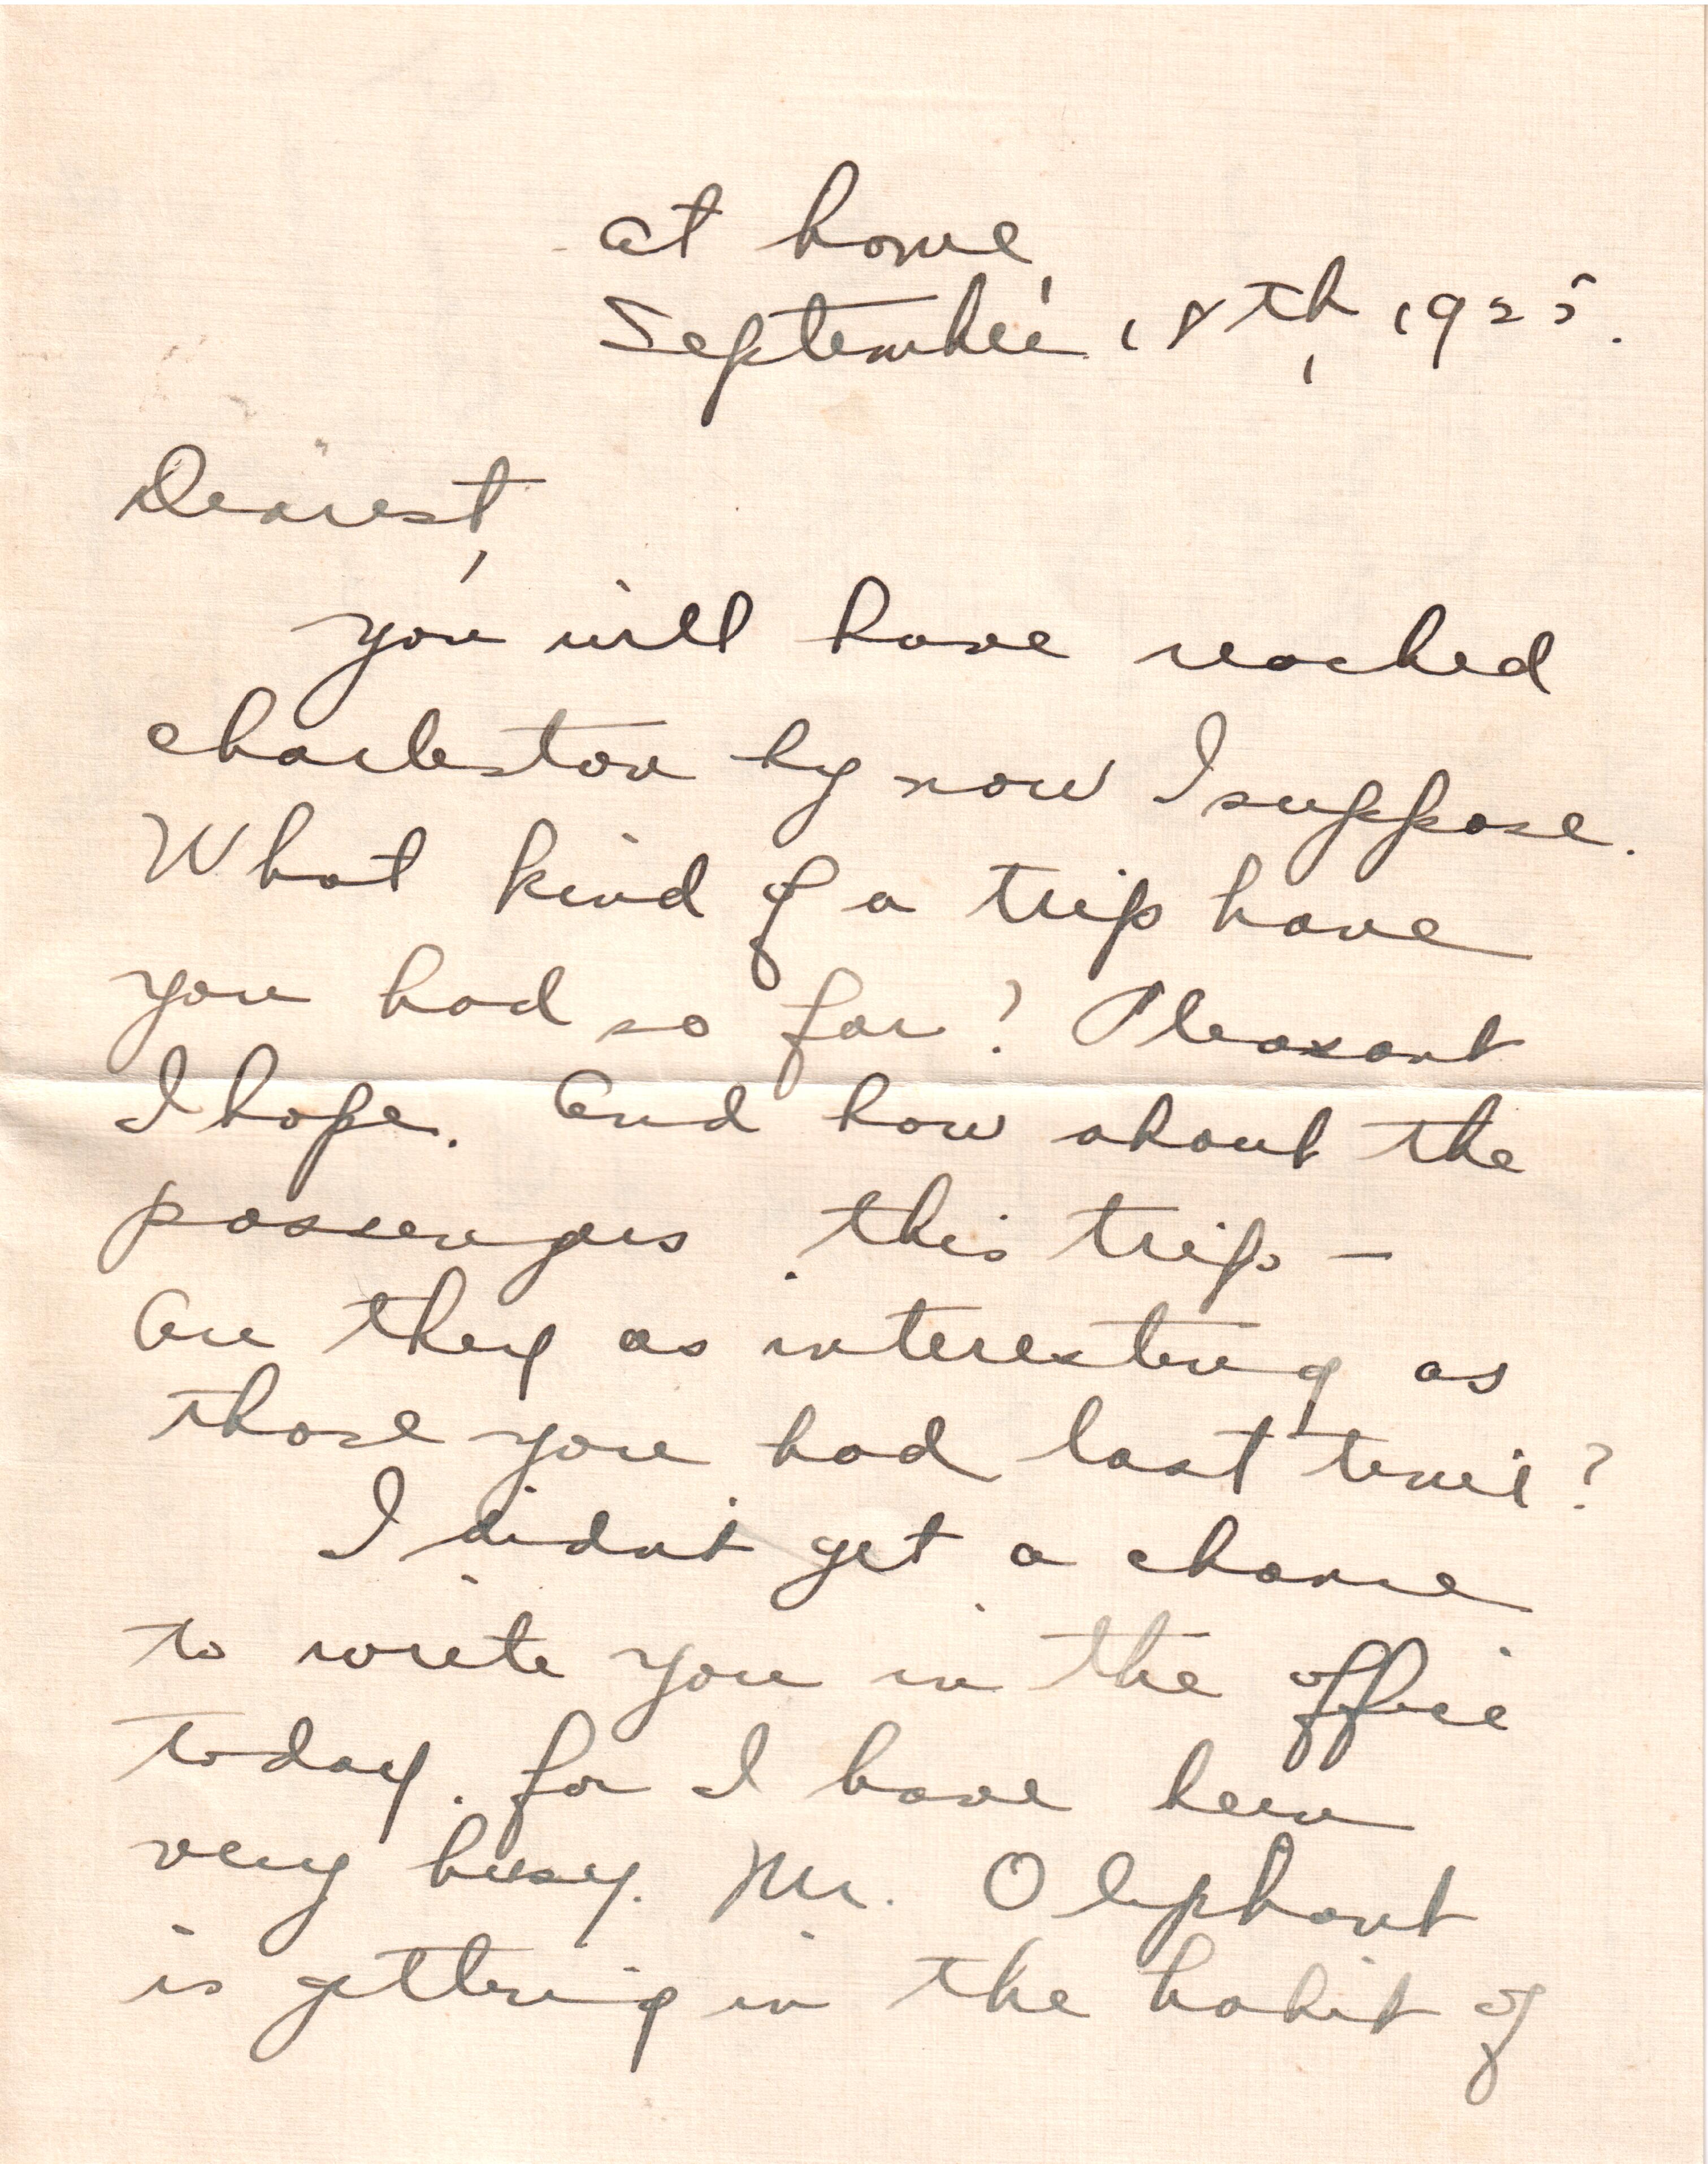 at home,
September 18th, 1925.
Dearest,
You will have reached
Charleston by now I suppose.
What kind of a trip have
you had so far? Pleasant
I hope. And how about the
passengers this trip -
Are they as interesting as
those you had last time?
I didnt get a chance
to write you in the office
today. for I have been
very busy. Mr. Oliphant
is getting in the habit of